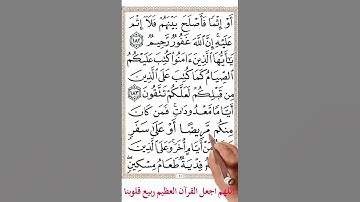 أَوْ إِثْمًا فَأَصْلَحَ بَيْنَهُمْ فَلَآ إِثْمَ
عَلَيْهِ إِنَّ ٱللَّهَ غَفُورٌ رَّحِيمٌ ١٨٢
يَٰٓأَيُّهَا ٱلَّذِينَ ءَامَنُوا۟ كُتِبَ عَلَيْكُمُ
ٱلصِّيَامُ كَمَا كُتِبَ عَلَى ٱلَّذِينَ
مِن قَبْلِكُمْ لَعَلَّكُمْ تَتَّقُونَ ١٨٣
أَيَّامًا مَّعْدُودَٰتٍ فَمَن كَانَ
مِنكُم مَّرِيضًا أَوْ عَلَىٰ سَفَرٍ
مِّنْ أَيَّامٍ أُخَرَ وَعَلَى ٱلَّذِينَ
فِدْيَةٌ طَعَامُ مِسْكِينٍ
اللهم اجعل القرآن العظيم ربيع قلوبنا